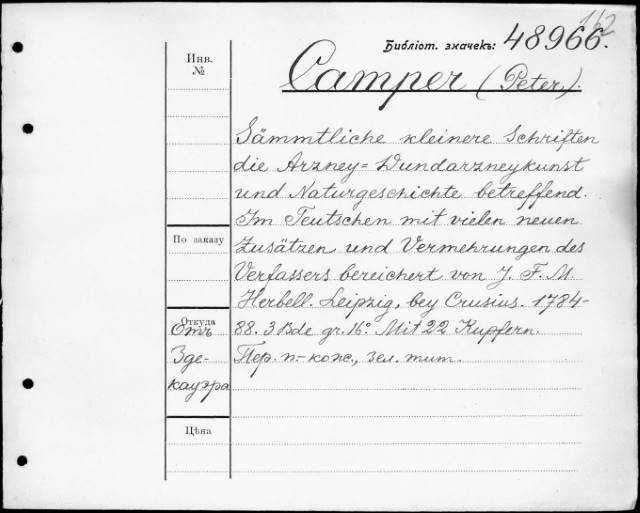 162
Библіот. значекъ: 48966.
Инв. №
Camper (Peter,).
Sämmtliche kleinere Schriften
die Arzney= Wundarzneykunst
und Naturgeschichte betreffend.
Im Teutschen mit vielen neuen
Zusätzen und Vermehrungen des
Verfassers bereichert von J. F. M.
Herbell. Leipzig, bey Crusius. 1784-
88. 3 Bde gr. 16°. Mit 22 Kupfern.
Пер. п.-кож., зел. тит.
По заказу
Откуда
Отъ
Зде-
кауэра
Цѣна